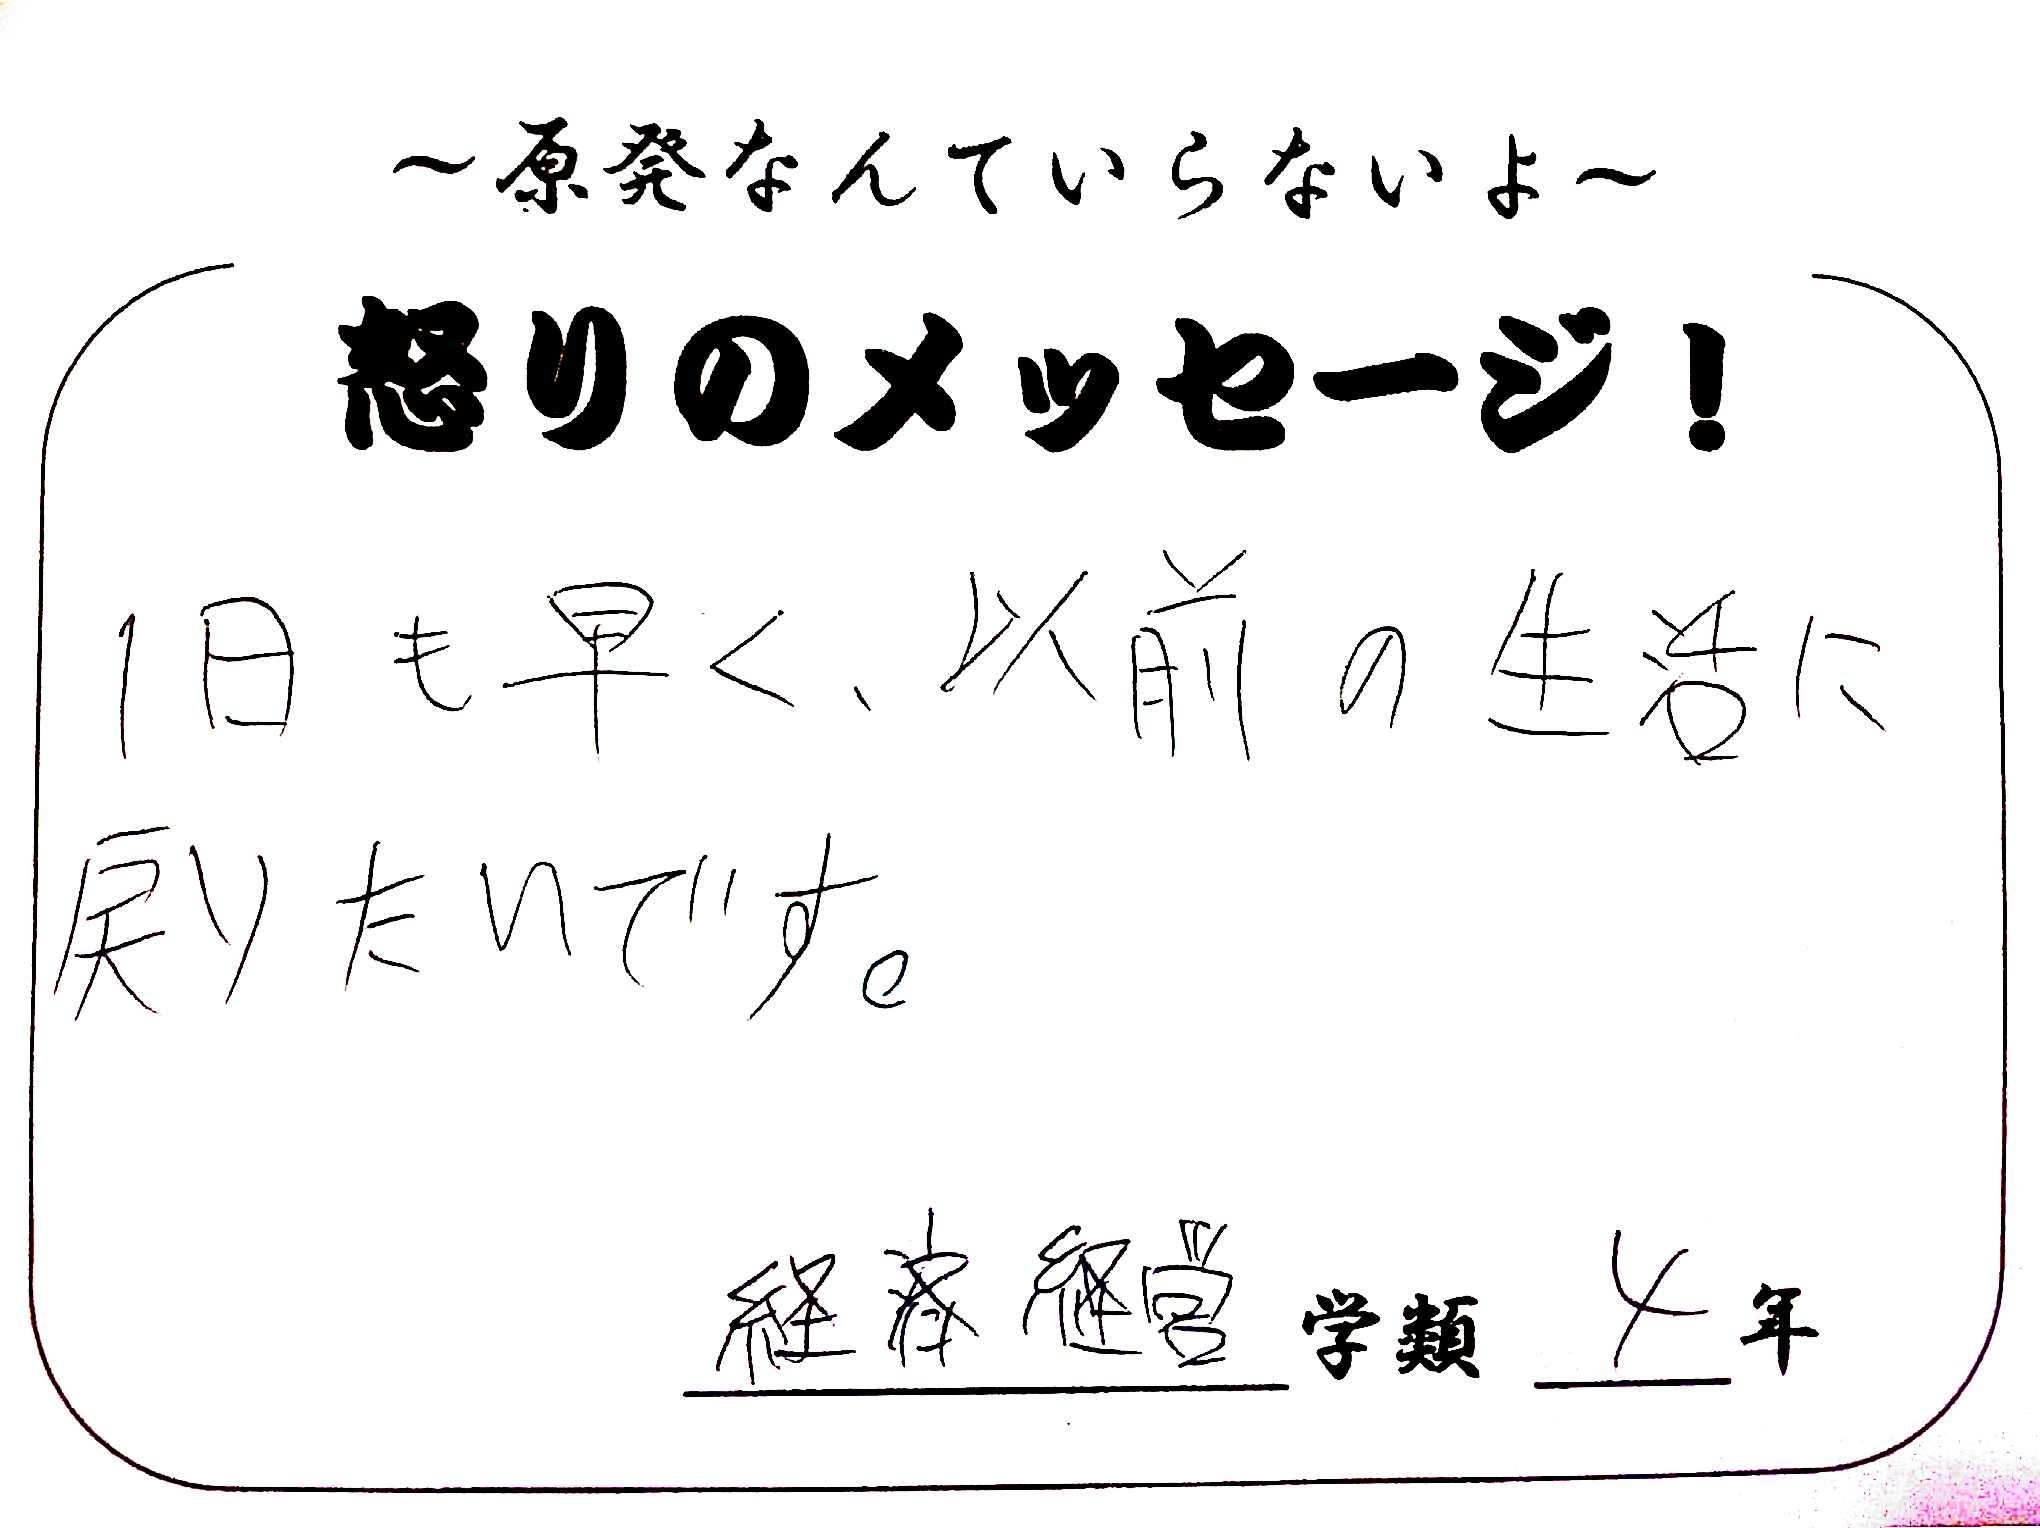 ～原発なんていらないよ～
怒りのメッセージ！
1日も早く、以前の生活に
戻りたいです。
経済経営学類 4年